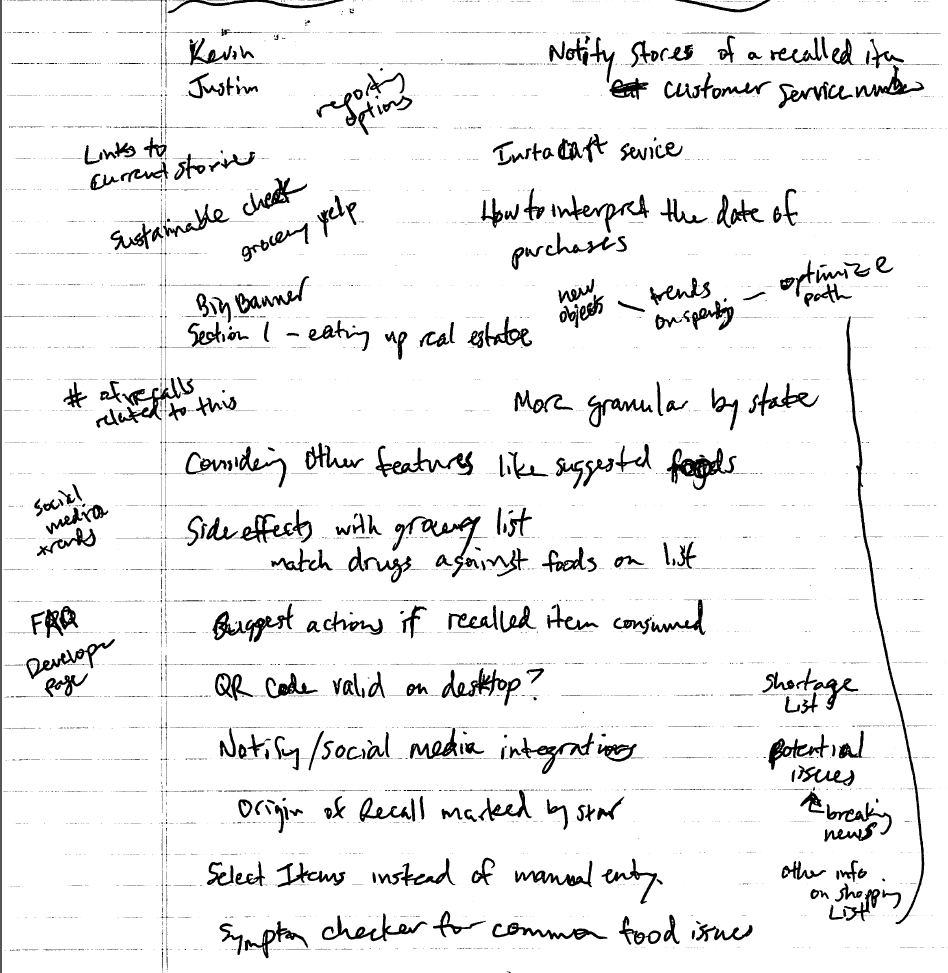 Kevin
Notify stores of a recalled item
Justin
customer service number
reporting
options
Links to
current stories
Instacart sevice
Sustainable check
grocery yelp
How to interpret the date of
purchases
Big Banner
new
objects
trends
on spending
optimize
path
Section 1 - eating up real estate
# of recalls
related to this
More granular by state
Considering other features like suggested foods
social
media
trends
Side effects with grocery list
match drugs against foods on list
FAQ
Developer
Page
Suggest actions if recalled item consumed
QR Code valid on desktop?
Shortage
Lists
Notify/social media integrations
Potential
issues
Origin of Recall marked by star
breaking
news
Select Items instead of manual entry
other info
on shopping
List
Symptom checker for common food issues